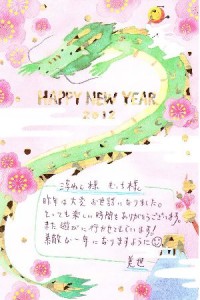 HAPPY NEW YEAR
2012
様 もっち様
昨年は大変お世話になりました。
とっても楽しい時間をありがとうございます。
また遊びに行かせて下さいます!
素敵な一年になりますように
美世